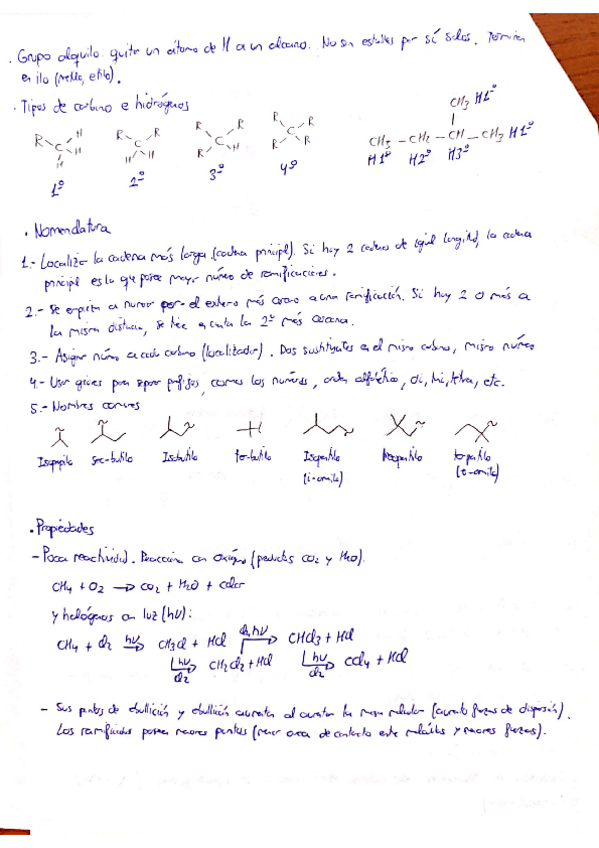 . Grupo alquilo: quita un átomo de H a un alcano. No son estables por sí solos. Terminan
en ilo (metilo, etilo).
. Tipos de carbono e hidrógenos
R H R R R R R R CH3 H1º
C C C C CH3 - CH2 - CH - CH3 H1º
H H H H R H R R H1º H2º H3º
1º 2º 3º 4º
. Nomenclatura
1.- Localizar la cadena más larga (cadena principal). Si hay 2 cadenas de igual longitud, la cadena
principal es la que posee mayor número de ramificaciones.
2.- Se empieza a numerar por el extremo más cercano a una ramificación. Si hay 2 o más a
la misma distancia, se tiene en cuenta la 2º más cercana.
3.- Asignar número a cada carbono (localizador). Dos sustituyentes en el mismo carbono, mismo número
4.- Usar guiones para separar prefijos, comas los números, orden alfabético, di, tri, tetra, etc.
5.- Nombres comunes
Isopropilo sec-butilo Isobutilo ter-butilo Isopentilo Neopentilo ter-pentilo
(i-amilo) (t-amilo)
. Propiedades
- Poca reactividad. Reaccionan con oxígeno (productos CO2 y H2O).
CH4 + O2 → CO2 + H2O + calor
y halógenos con luz (hν):
CH4 + Cl2 hν → CH3Cl + HCl Cl2, hν → CHCl3 + HCl
hν Cl2 → CH2Cl2 + HCl hν Cl2 → CCl4 + HCl
- Sus puntos de ebullición y ebullición aumentan al aumentar la masa molecular (aumento fuerzas de dispersión).
Los ramificados poseen menores puntos (menor area de contacto entre moléculas y menores fuerzas).